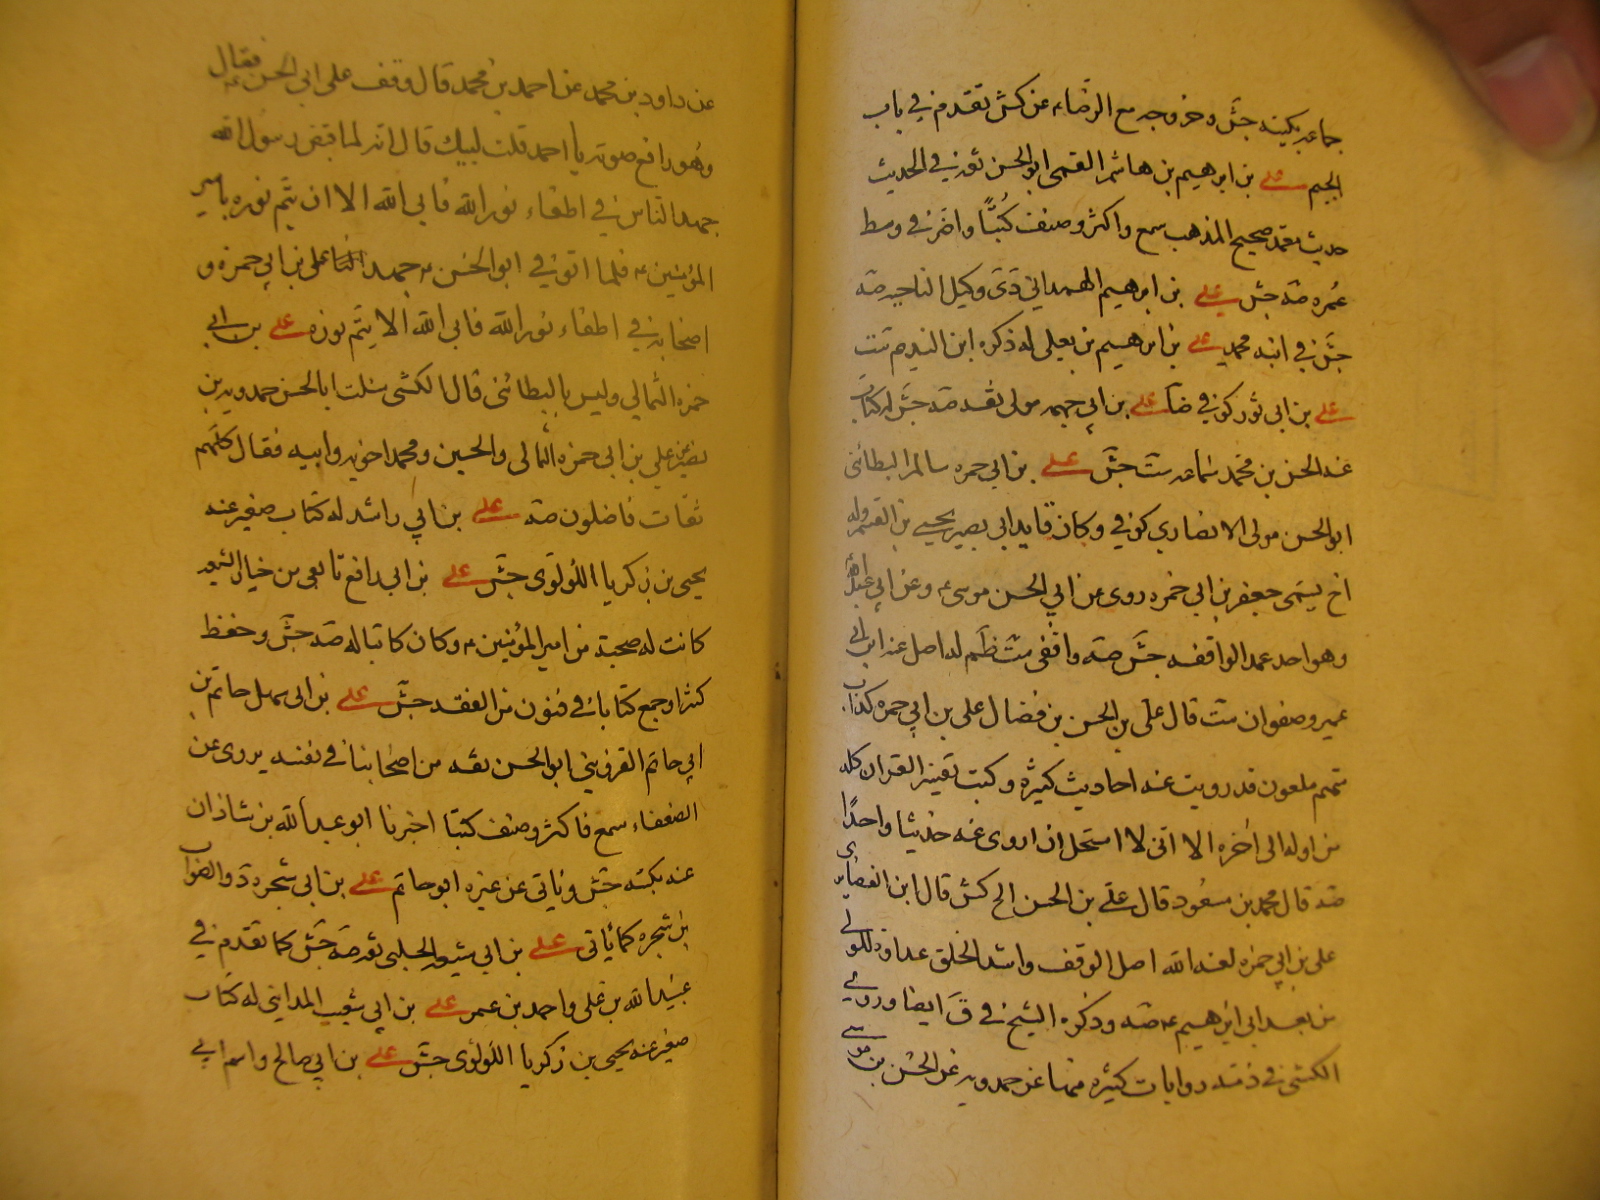 جماعه بكتبه جش وخروجه مع الرضا ء عن كش تقدم في باب
الجيم علي بن ابرهيم بن هاشم القمي ابو الحسن ثقه في الحديث
حديث معتمد صحيح المذهب سمع واكثر وصنف كتبا واضر في وسط
عمره صه جش علي بن ابرهيم الهمداني دى وكيل الناحيه صه
جش في ابنه محمد علي بن ابرهيم بن يعلى له ذكره ابن النديم ست
علي بن ابي ثور كوفي ضا علي بن ابي جهمه مولى ثقه صه جش له كتاب
عنه الحسن بن محمد سماعه ست جش علي بن ابي حمزه سالم البطائني
ابو الحسن مولى الانصاري كوفي وكان قايد ابي بصير يحيى بن القسم وله
اخ يسمى جعفر بن ابي حمزه روى عن ابي الحسن موسى ء وعن ابي عبدالله
وهو احد عمد الواقفه جش صه واقفي ست ظم له اصل عنه ابن ابي
عمير وصفوان ست قال علي بن الحسن بن فضال علي بن ابي حمزه كذاب
متهم ملعون قد رويت عنه احاديث كثيره وكتبت تفسير القران كله
من اوله الى اخره الا اني لا استحل ان اروى عنه حديثا واحدا
صه قال محمد بن مسعود قال علي بن الحسن الخ كش قال ابن الغضايرى
علي بن ابي حمزه لعنه الله اصل الوقف واشد الخلق عداوة للولي
من بعد ابي ابرهيم ء صه وذكره الشيخ في ق ايضا وروى
الكشي في ذمه روايات كثيره منها عن حمدويه عن الحسن بن موسى
عن داود بن محمد عن احمد بن محمد قال وقف على ابي الحسن ء فقال
وهو رافع صوته يا احمد قلت لبيك قال انه لما قبض رسول الله
جهد الناس في اطفاء نور الله فابى الله الا ان يتم نوره بامير
المؤمنين ء فلما توفي ابو الحسن ء جهد علي بن ابي حمزه و
اصحابه في اطفاء نور الله فابى الله الا يتم نوره علي بن ابي
حمزه الثمالي وليس بالبطائني قال الكشي سئلت ابا الحسن حمدويه بن
نصير عن علي بن ابي حمزه الثمالي والحسين ومحمد اخويه وابيه فقال كلهم
ثقات فاضلون صه علي بن ابي راشد له كتاب صغير عنه
يحيى بن زكريا اللولوى جش علي بن ابي رافع تابعي من خيار الشيعه
كانت له صحبة من امير المؤمنين ء وكان كاتبا له صه جش وحفظ
كثيرا وجمع كتابا في فنون من الفقه جش علي بن ابي سهل حاتم بن
ابي حاتم القزويني ابو الحسن ثقه من اصحابنا في نفسه يروى عن
الضعفاء سمع فاكثر وصنف كتبا اخبرنا ابو عبد الله بن شاذان
عنه بكتبه جش وياتي عن غيره ابو حاتم علي بن ابي شجره د والصواب
بن شجره كما ياتي علي بن ابي شعبه الحلبي ثقه صه جش كما تقدم في
عبيد الله بن علي واحمد بن عمر علي بن ابي شعيب المدايني له كتاب
صغير عنه يحيى بن زكريا اللولؤى جش علي بن ابي صالح واسم ابي